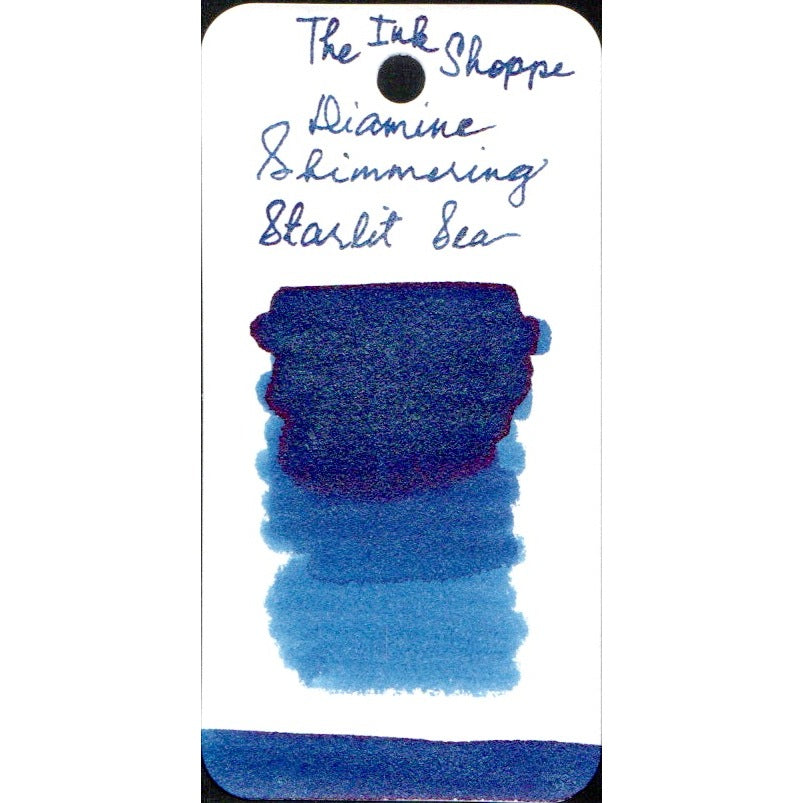 The Ink Shoppe
Diamine
Shimmering
Starlit Sea